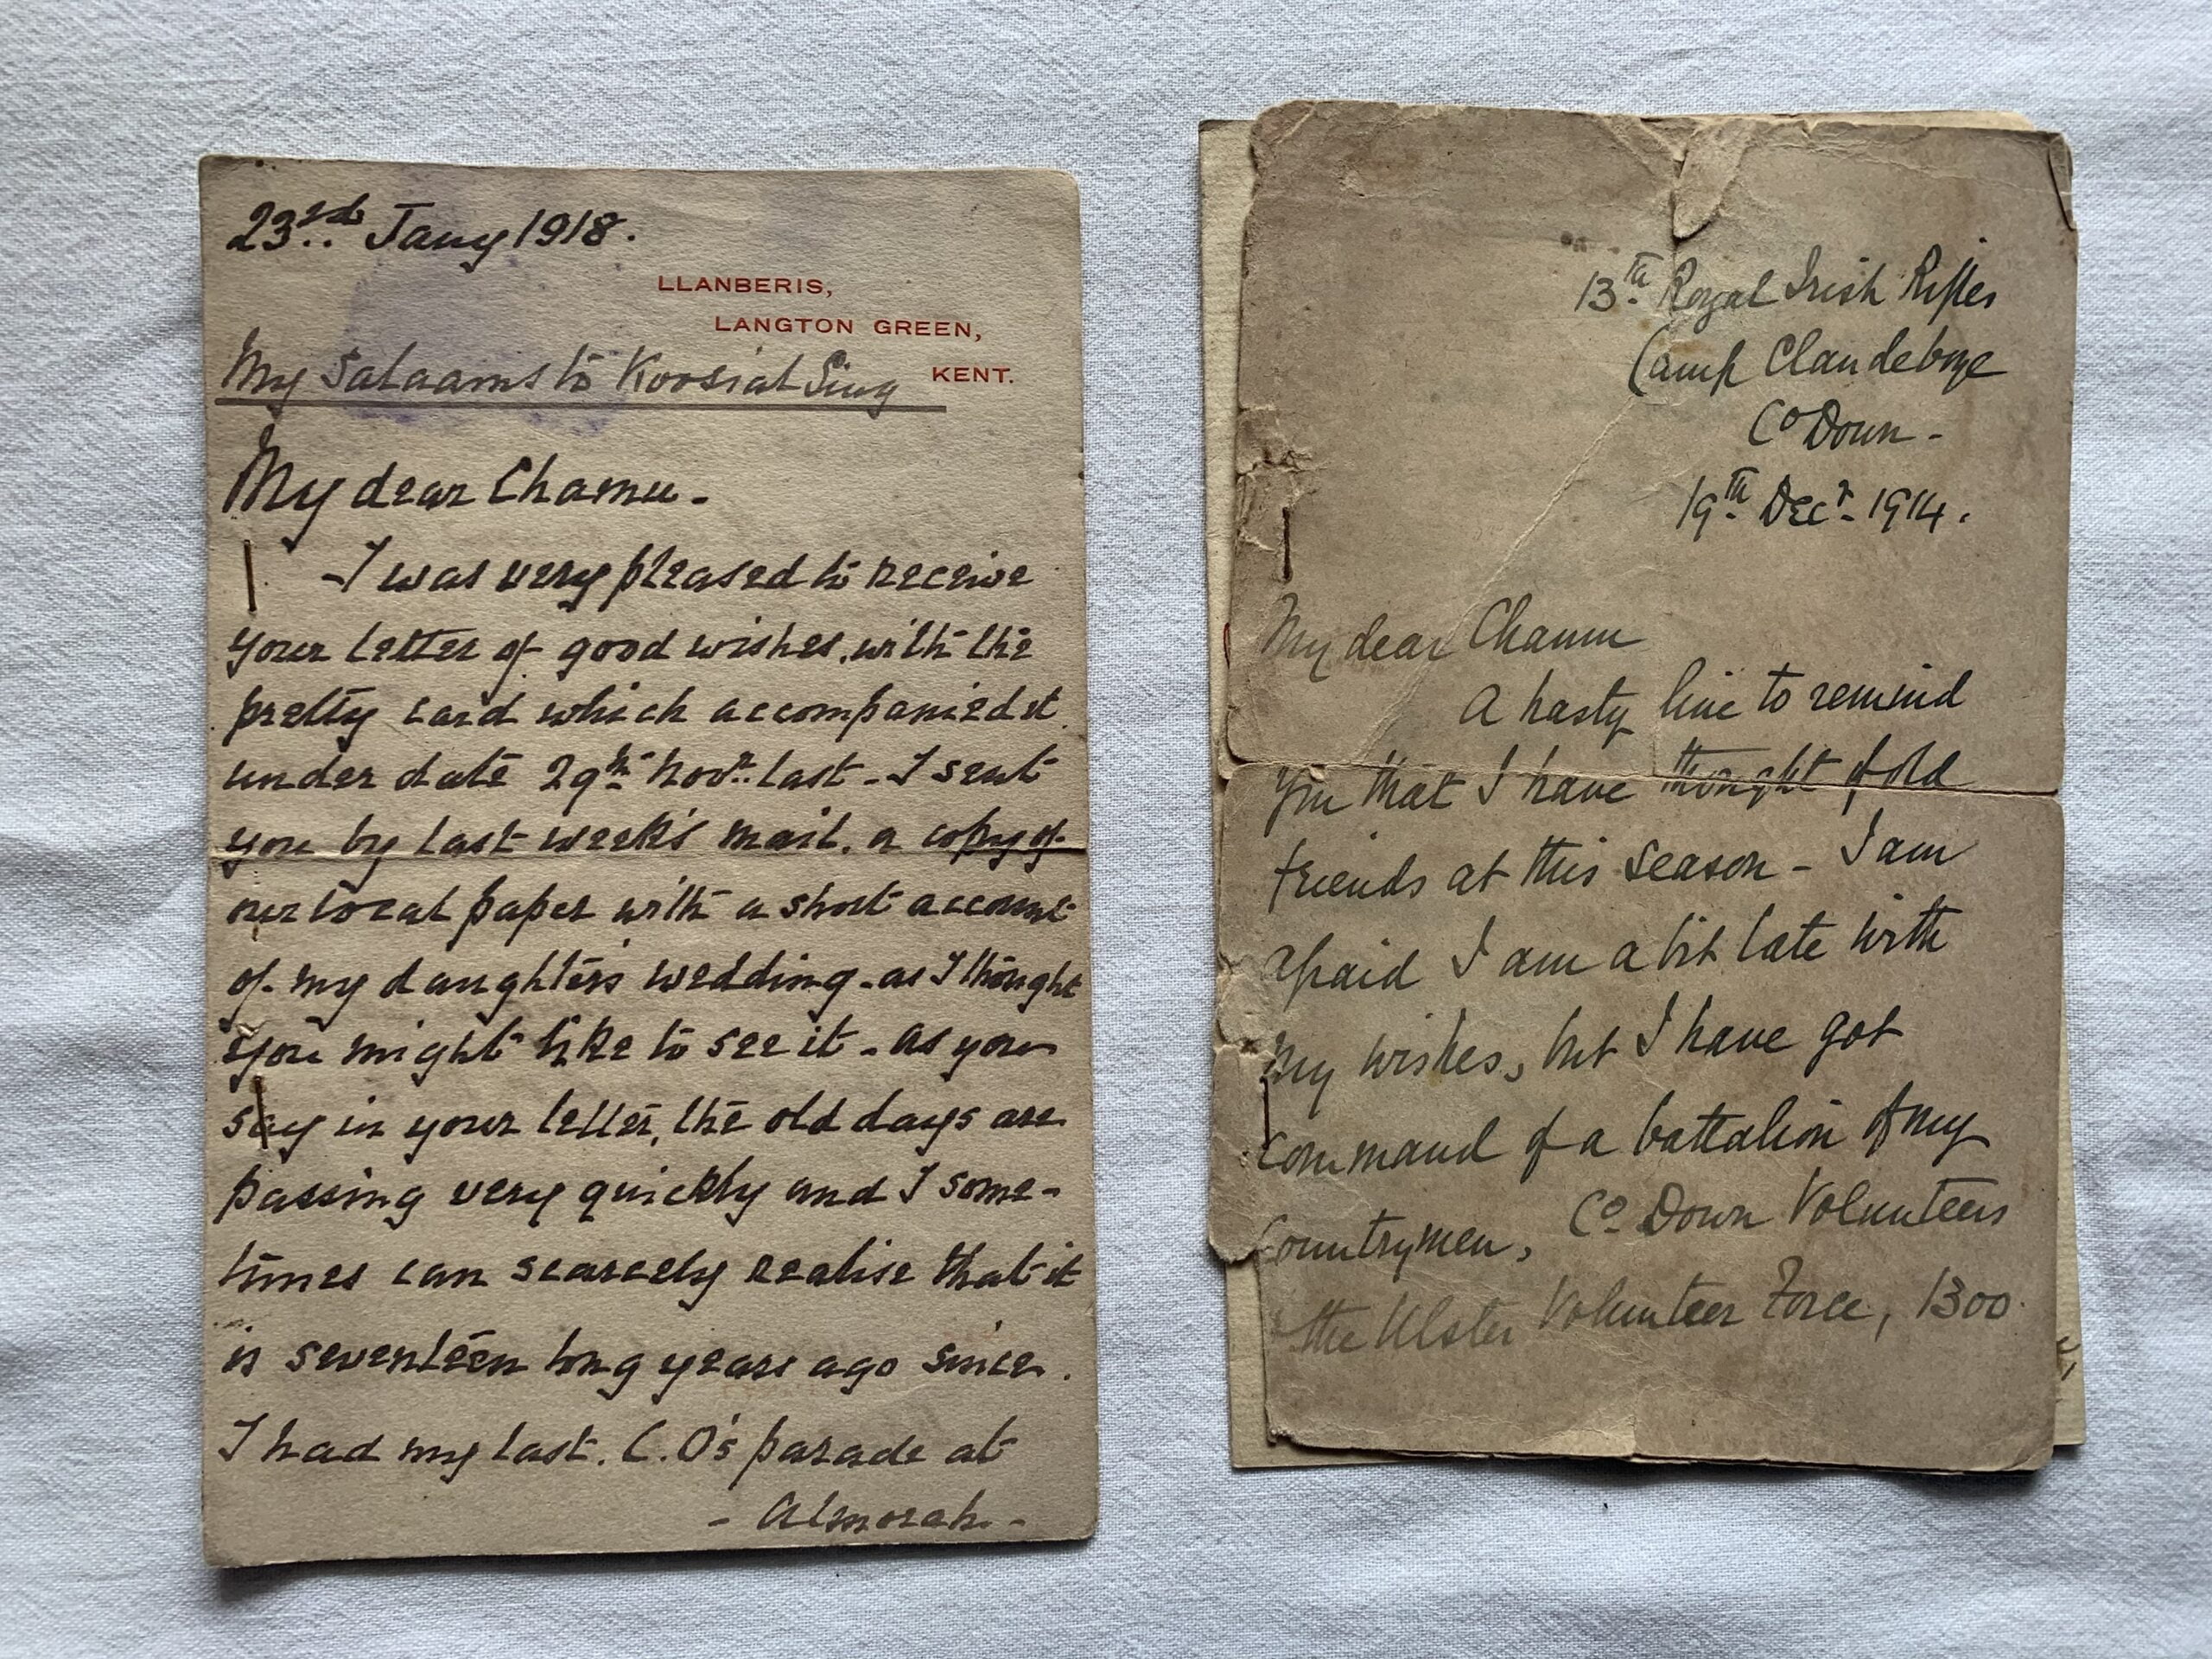 23rd Jany 1918.
LLANBERIS,
LANGTON GREEN,
KENT.
My Salaams to Koosial Sing
My dear Chamu -
I was very pleased to receive
your letter of good wishes, with the
pretty card which accompanied it
under date 29th Novr. last - I sent
you by last week's mail, a copy of
our local paper with a short account
of my daughter's wedding - as I thought
you might like to see it - as you
say in your letter, the old days are
passing very quickly and I some-
times can scarcely realise that it
is seventeen long years ago since
I had my last C.O's parade at
- Almorah -
13th Royal Irish Rifles
Camp Clandeboye
Co Down -
19th Decr - 1914.
My dear Chamu
A hasty line to remind
you that I have thought of old
friends at this season - I am
afraid I am a bit late with
my wishes, but I have got
command of a battalion of my
countrymen, Co Down Volunteers
the Ulster Volunteer Force, 1300